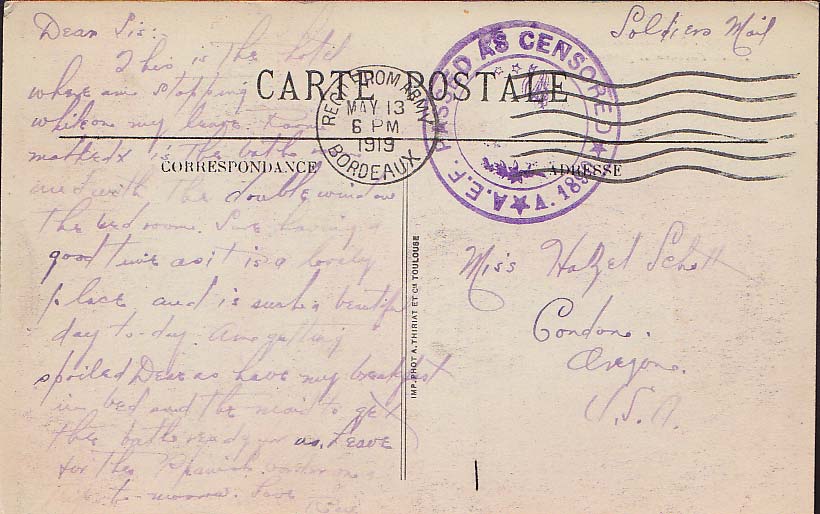 Dear Sis:-
This is the hotel
where am stopping
while on my leave. Room
marked x is the bath room
and with the double window
the bed room. Am having a
good time as it is a lovely
place and is such a beautiful
day to-day. Am getting
spoiled Dear as have my breakfast
in bed and the maid to get
the bath ready
as. Leave
for the Spanish border
to-morrow. Love
Soldiers Mail
CARTE POSTALE
REC'D FROM ARMY
MAY 13
6 PM
1919
BORDEAUX
PASSED AS CENSORED
A.E.F.
CORRESPONDANCE
ADRESSE
IMP. PHOT A. THIRIAT ET Cie TOULOUSE
Miss Hazel Schott
Condon.
Oregon.
U.S.A.